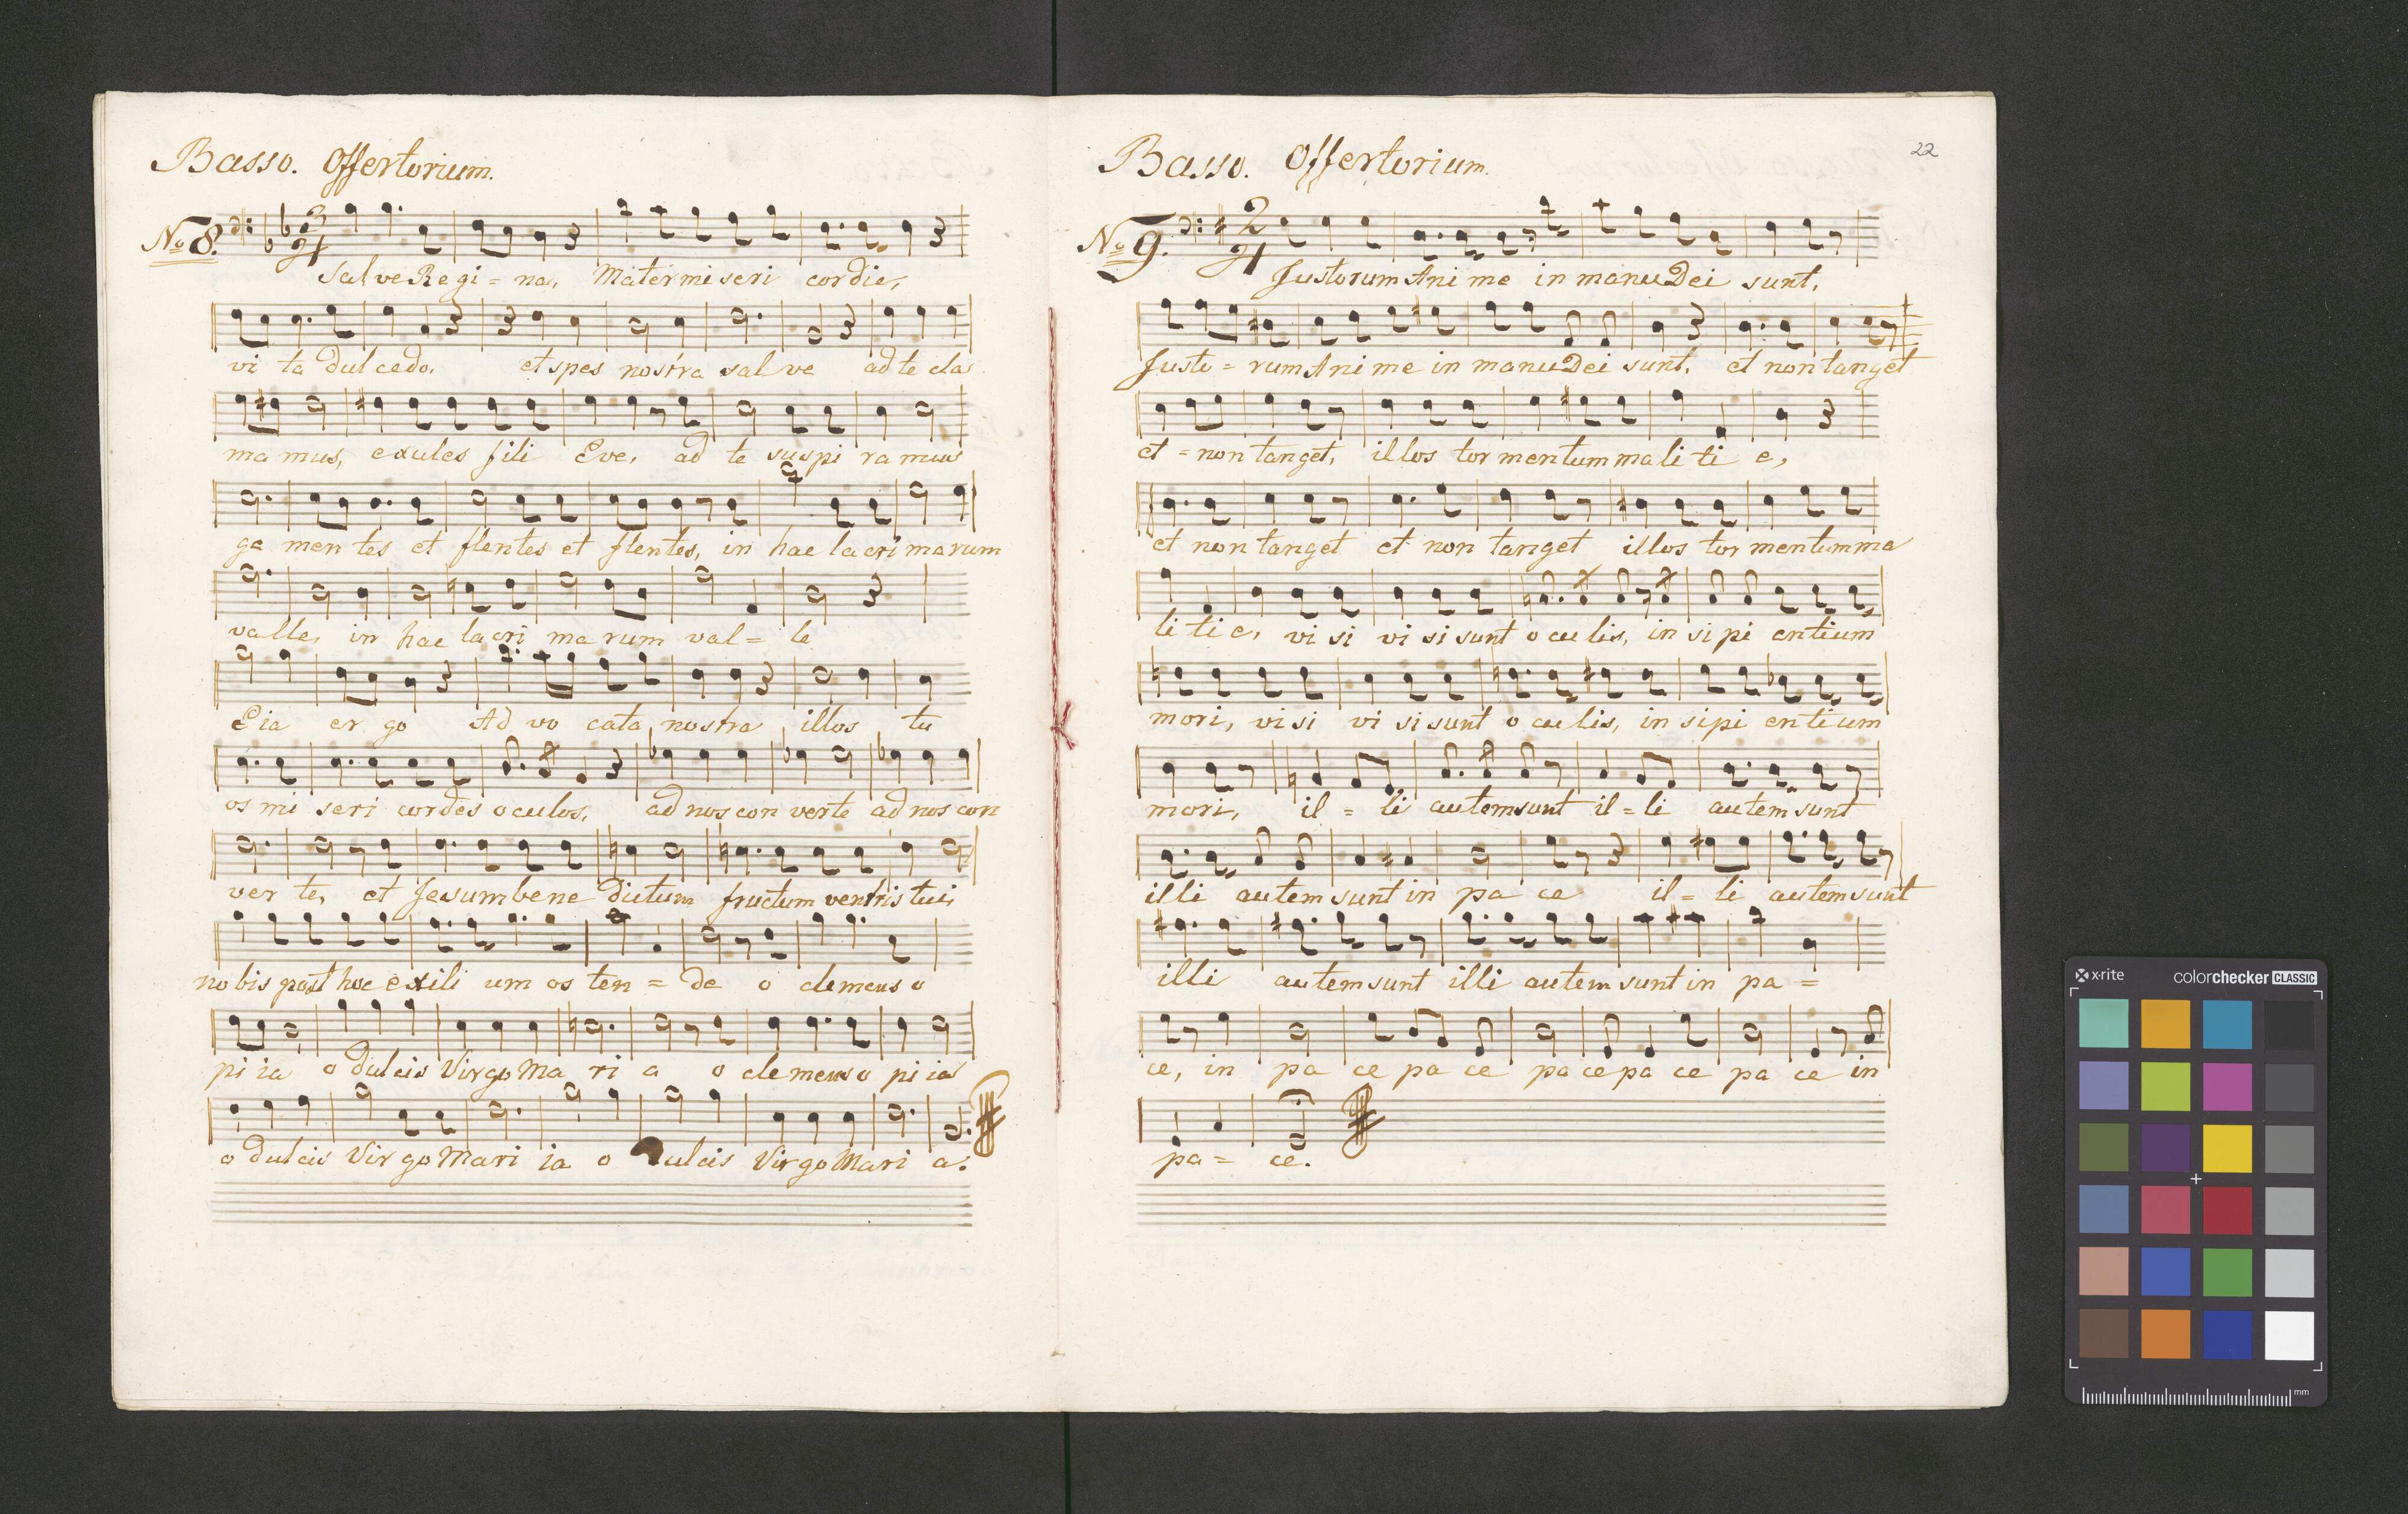 Basso. Offertorium.
No 8. 3 4
Salve Regi = na, Mater miseri cordie,
vi ta dulcedo, et spes nostra sal ve ad te cla
ma mus, exules fili Eve, ad te suspi ra mus
ge men tes et flentes et flentes, in hac lacri marum
valle, in hac lacri ma rum val = le
Eia er go Ad vo cata nostra illos tu
os mi seri cordes oculos, ad nos con verte ad nos con
ver te, et Jesum bene dictum fructum ventris tui,
no bis post hoc exili um os ten = de o clemens o
pi ia o dulcis Virgo Ma ri a o clemens o pi ia
o dulcis Vir go Mari ia o dulcis Virgo Mari a.
Basso. Offertorium.
22
No 9. 2 4
Justorum Ani me in manu Dei sunt,
Justo = rum Ani me in manu Dei sunt, et non tanget
et = non tanget, illos tor mentum ma li ti e,
et non tanget et non tanget illos tor mentum ma
li ti e, vi si vi si sunt o cu lis, in si pi entium
mori, vi si vi si sunt o cu lis, in si pi en ti um
mori, il = li autem sunt il = li autem sunt
illi autem sunt in pa ce il = li autem sunt
illi autem sunt illi autem sunt in pa =
ce, in pa ce pa ce pa ce pa ce pa ce in
pa = ce.
x·rite colorchecker CLASSIC
mm